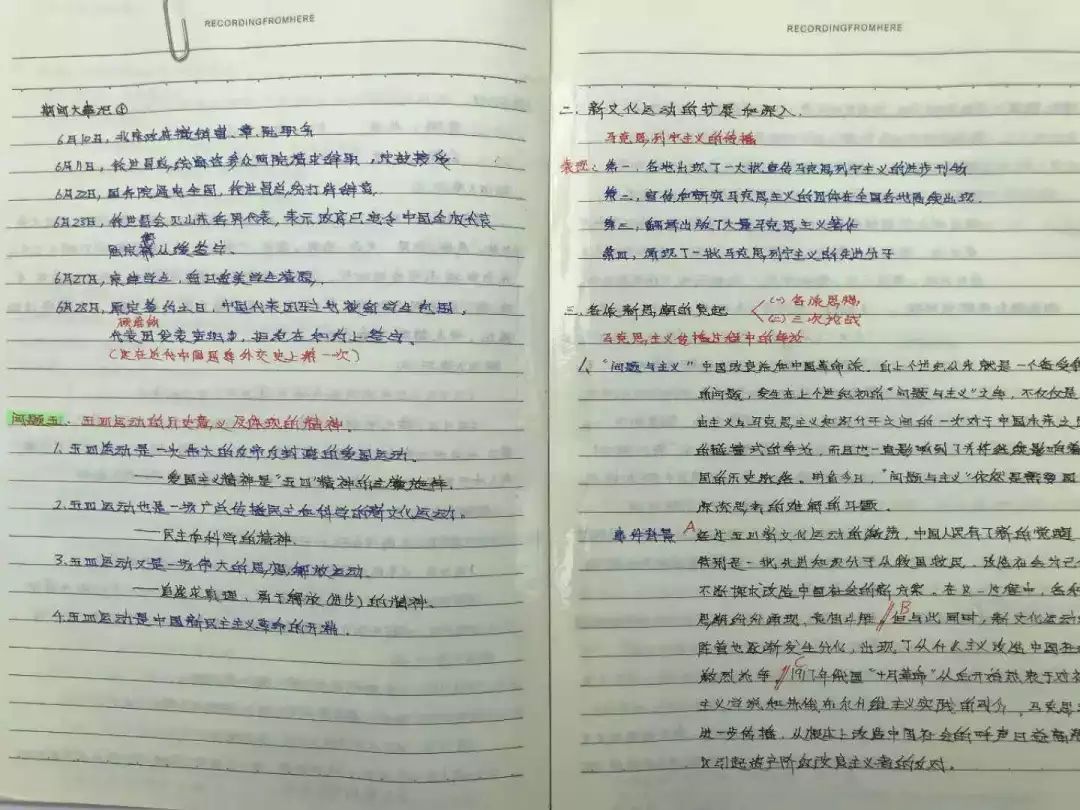 RECORDINGFROMHERE
期间大事记①
6月10日，北庆政府撤销曹、章、陆职务
6月11日，徐世昌总统向参众两院请求辞职，未被接受
6月22日，国务院通电全国，徐世昌总统打消辞意。
6月23日，徐世昌会见山东各界代表，表示政府已电令中国全权代表
应从缓签字。
6月27日，京津学生，留日留美学生请愿，
6月28日，原定签约之日，中国代表团驻地被留学生包围，
被迫的
代表团发表宣布，拒绝在和约上签字。
（这在近代中国屈辱外交史上第一次）
问题五：五四运动的历史意义及体现的精神。
1.五四运动是一次伟大的反帝反封建的爱国运动。
——爱国主义精神是"五四"精神的主旋律。
2.五四运动也是一场广泛传播民主和科学的新文化运动。
——民主和科学的精神。
3.五四运动又是一场伟大的思想解放运动。
——追求真理，勇于解放（进步）的精神。
4.五四运动是中国新民主主义革命的开端。
RECORDINGFROMHERE
二、新文化运动的扩展和深入。
马克思列宁主义的传播
表现：第一，各地出现了一大批宣传马克思列宁主义的进步刊物
第二，宣传和研究马克思主义的团体在全国各地陆续出现。
第三，翻译出版了大量马克思主义著作
第四，涌现了一批马克思列宁主义的先进分子
三、各派新思潮的兴起
(一)各派思想
(二)三次论战
马克思主义传播过程中的争论
1、"问题与主义"中国改良派和中国革命派，自上个世纪以来就是一个备受
的问题，发生在上个世纪初的"问题与主义"之争，不仅仅是
由主义与马克思主义知识分子之间的一次对于中国未来之
的碰撞式的争论，而且也一直影响到了并将继续影响着
国的历史抉择。时至今日，"问题与主义"依然是需要
深沉思考的难解的斗题。
事件背景 A 经过五四新文化运动的激荡，中国人民有了新的觉醒
特别是一批先进知识分子从救国救民、改造社会
不断探求改造中国社会的新方案。在这一过程中，各种
思潮纷纷涌现，竞相斗胜，//B但与此同时，新文化运动
阵营也逐渐发生分化，出现了从什么主义改造中国社
激烈论争。//C1917年俄国"十月革命"以后开始热衷于对社
主义学说和苏俄布尔什维主义实践的引介，马克思
进一步传播，从根本上改造中国社会的呼声日益高
又引起资产阶级改良主义者的反对。